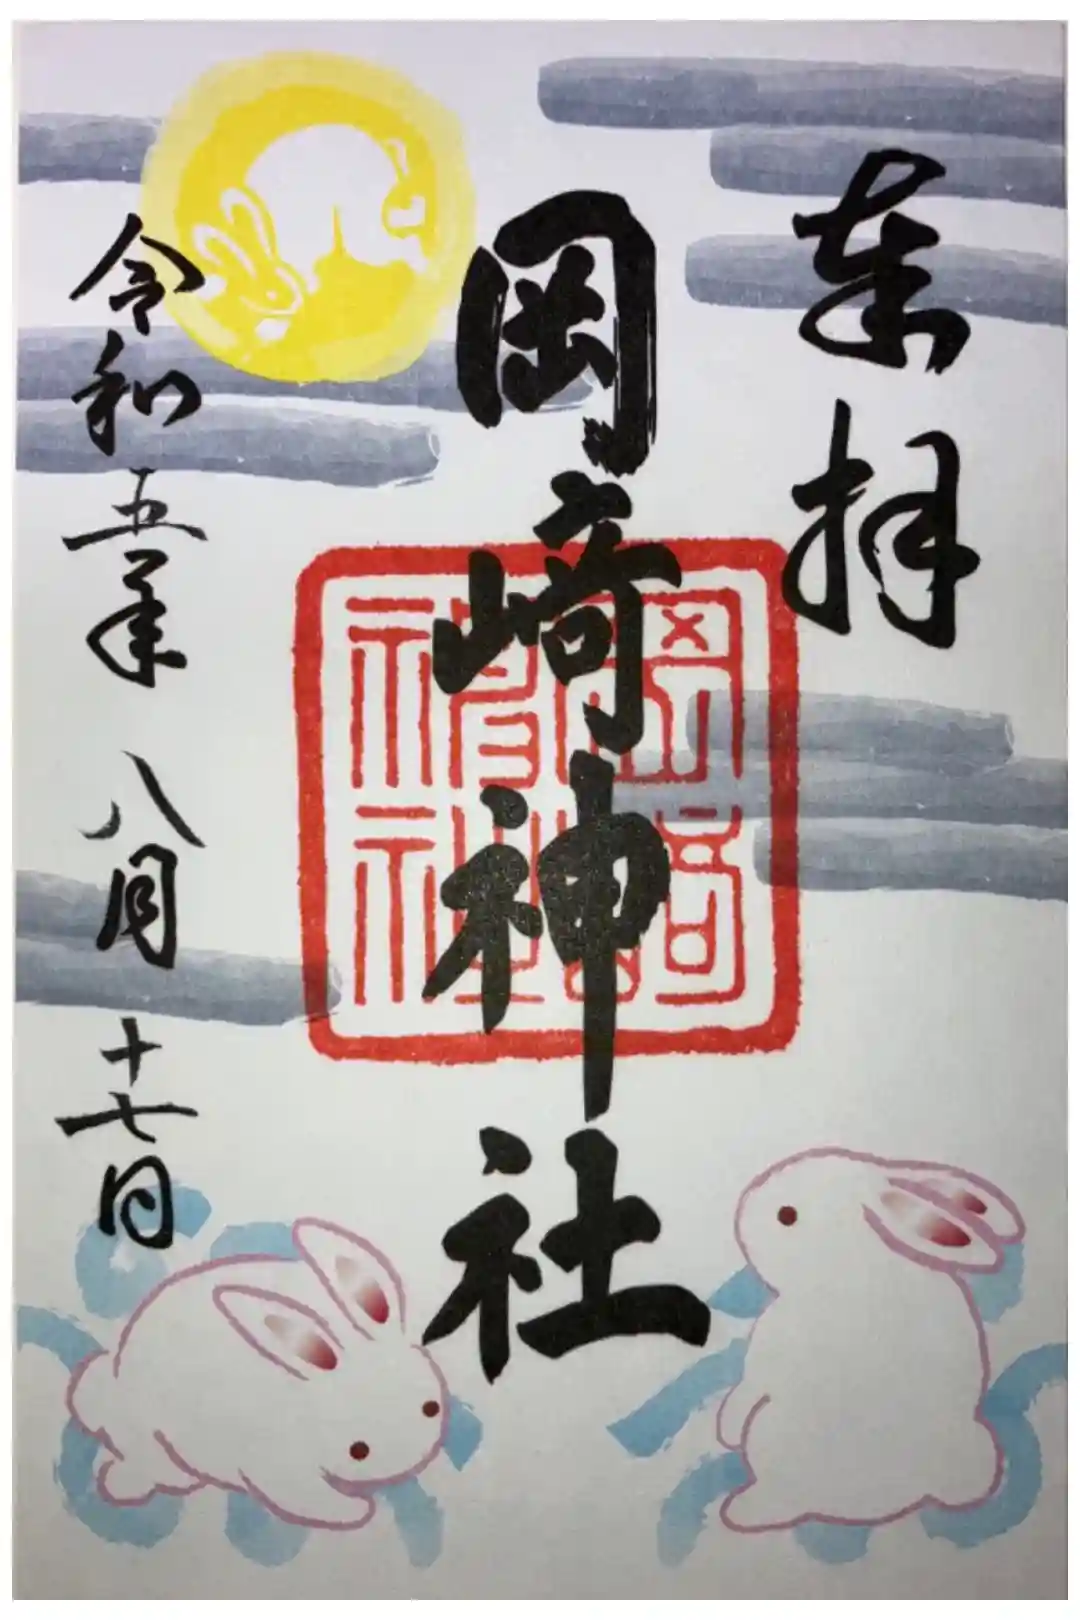 奉拝
岡崎神社
岡崎神社
令和五年八月十七日